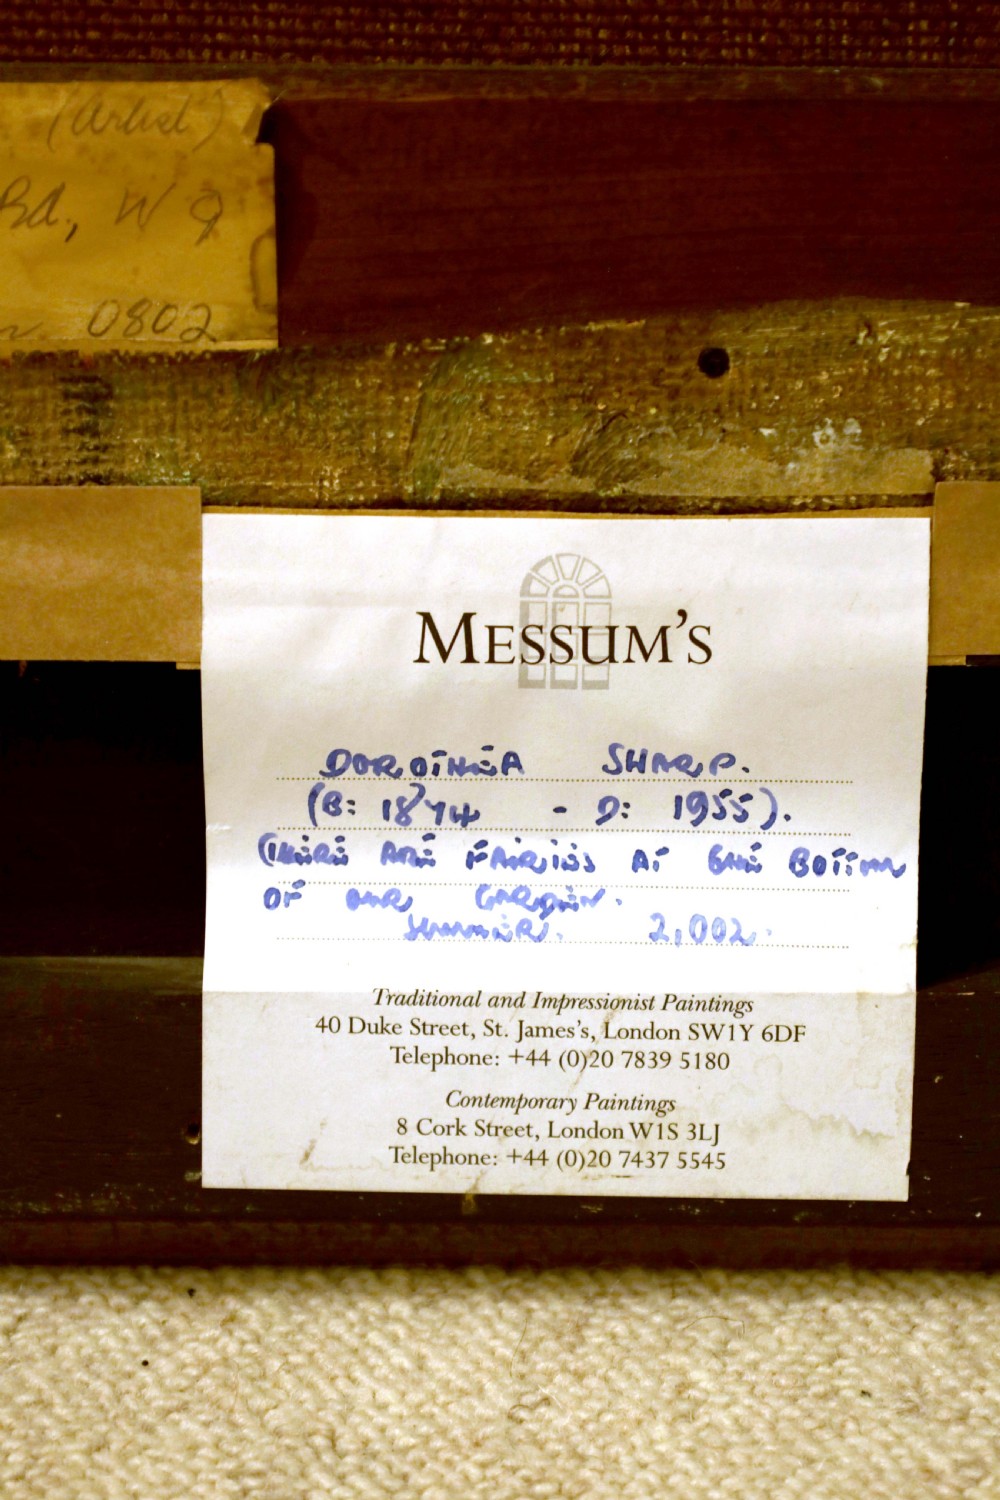 (Artist)
Rd, W 9
0802
MESSUM'S
DOROTHEA SHARP.
(B: 1874 - D: 1955).
(THERE ARE FAIRIES AT THE BOTTOM
OF OUR GARDEN.
SUMMER. 2,002.
Traditional and Impressionist Paintings
40 Duke Street, St. James's, London SW1Y 6DF
Telephone: +44 (0)20 7839 5180
Contemporary Paintings
8 Cork Street, London W1S 3LJ
Telephone: +44 (0)20 7437 5545